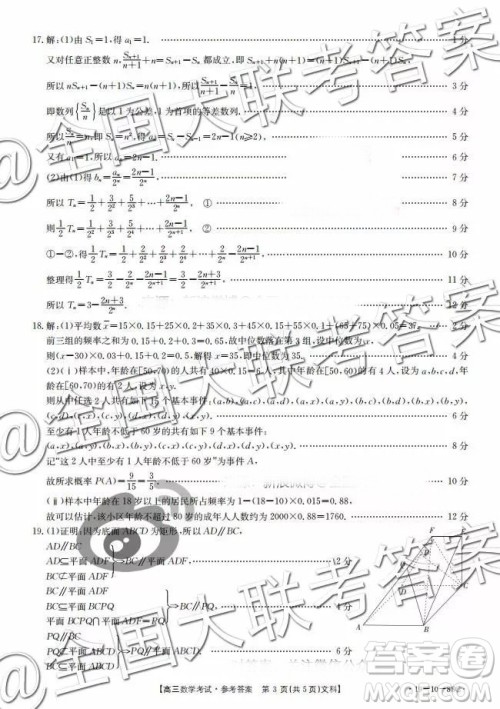 17.解:(1)由 S₁=1,得 a₁=1. 1 分
又对任意正整数 n,
所以 nSₙ₊₁-(n+1)Sₙ=n(n+1),所以 3 分
即数列{Sₙ/n}是以 1 为公差,1 为首项的等差数列. 4 分
所以 Sₙ/n=n,即 Sₙ=n²,得 aₙ=Sₙ-Sₙ₋₁=2n-1(n≥2). 5 分
又有 a₁=1,所以 aₙ=2n-1. 6 分
(2)由(1)得 bₙ=aₙ/2ⁿ=(2n-1)/2ⁿ. 7 分
所以 Tₙ=1/2+3/2²+5/2³+…+(2n-1)/2ⁿ, ① 8 分
则 1/2 Tₙ=1/2²+3/2³+5/2⁴+…+(2n-1)/2ⁿ⁺¹. ② 9 分
①-②,得 1/2 Tₙ=1/2+2/2²+2/2³+…+2/2ⁿ-(2n-1)/2ⁿ⁺¹. 10 分
整理得 1/2 Tₙ=3/2-2/2ⁿ-(2n-1)/2ⁿ⁺¹. 11 分
所以 Tₙ=3-(2n+3)/2ⁿ. 12 分
18.解:(1)平均数 x̄=15×0.15+25×0.2+35×0.3+45×0.15+ 2 分
前三组的频率之和为 0.15+0.2+0.3=0.65,故中位数落在第 3 组,设中位数为 x,
则(x-30)×0.03+0.15+0.2=0.5,解得 x=35,即中位数为 35. 4 分
(2)(ⅰ)样本中,年龄在[50,70)的人共有 40×0.15=6 人,其中年龄在[50,60)的有 4 人,设为 a,b,c,d,年
龄在[60,70)的有 2 人,设为 x,y.
则从中任选 2 人共有如下 15 个基本事件:(a,b),(a,c),(a,d),(a,x),(a,y),(b,c),(b,d),(b,x),(b,y),
(c,d),(c,x),(c,y),(d,x),(d,y),(x,y). 6 分
至少有 1 人年龄不低于 60 岁的共有如下 9 个基本事件:
(a,x),(a,y),(b,x),(b,y),(c,x),(c,y),(d,x),(d,y),(x,y). 8 分
记“这 2 人中至少有 1 人年龄不低于 60 岁”为事件 A,
故所求概率 P(A)=9/15=3/5.
(ⅱ)样本中年龄在 18 岁以上的居民所占频率为 1-(18-10)×0.015=0.88,
故可以估计,该小区年龄不超过 80 岁的成年人人数约为 2000×0.88=1760. 12 分
19.(1)证明:因为底面 ABCD 为矩形,所以 AD∥BC,
AD∥BC
AD⊆平面 ADF ⇒BC∥平面 ADF 2 分
BC⊄平面 ADF
BC⊆平面 BCPQ ⇒BC∥PQ. 4 分
平面 BCPQ∩平面 ADF=PQ
PQ∥BC
PQ⊄平面 ABCD ⇒PQ∥平面 ABCD. 6 分
BC⊆平面 ABCD
【高三数学考试·参考答案 第 3 页(共 5 页)文科】
@全国大联考答案
答案圈